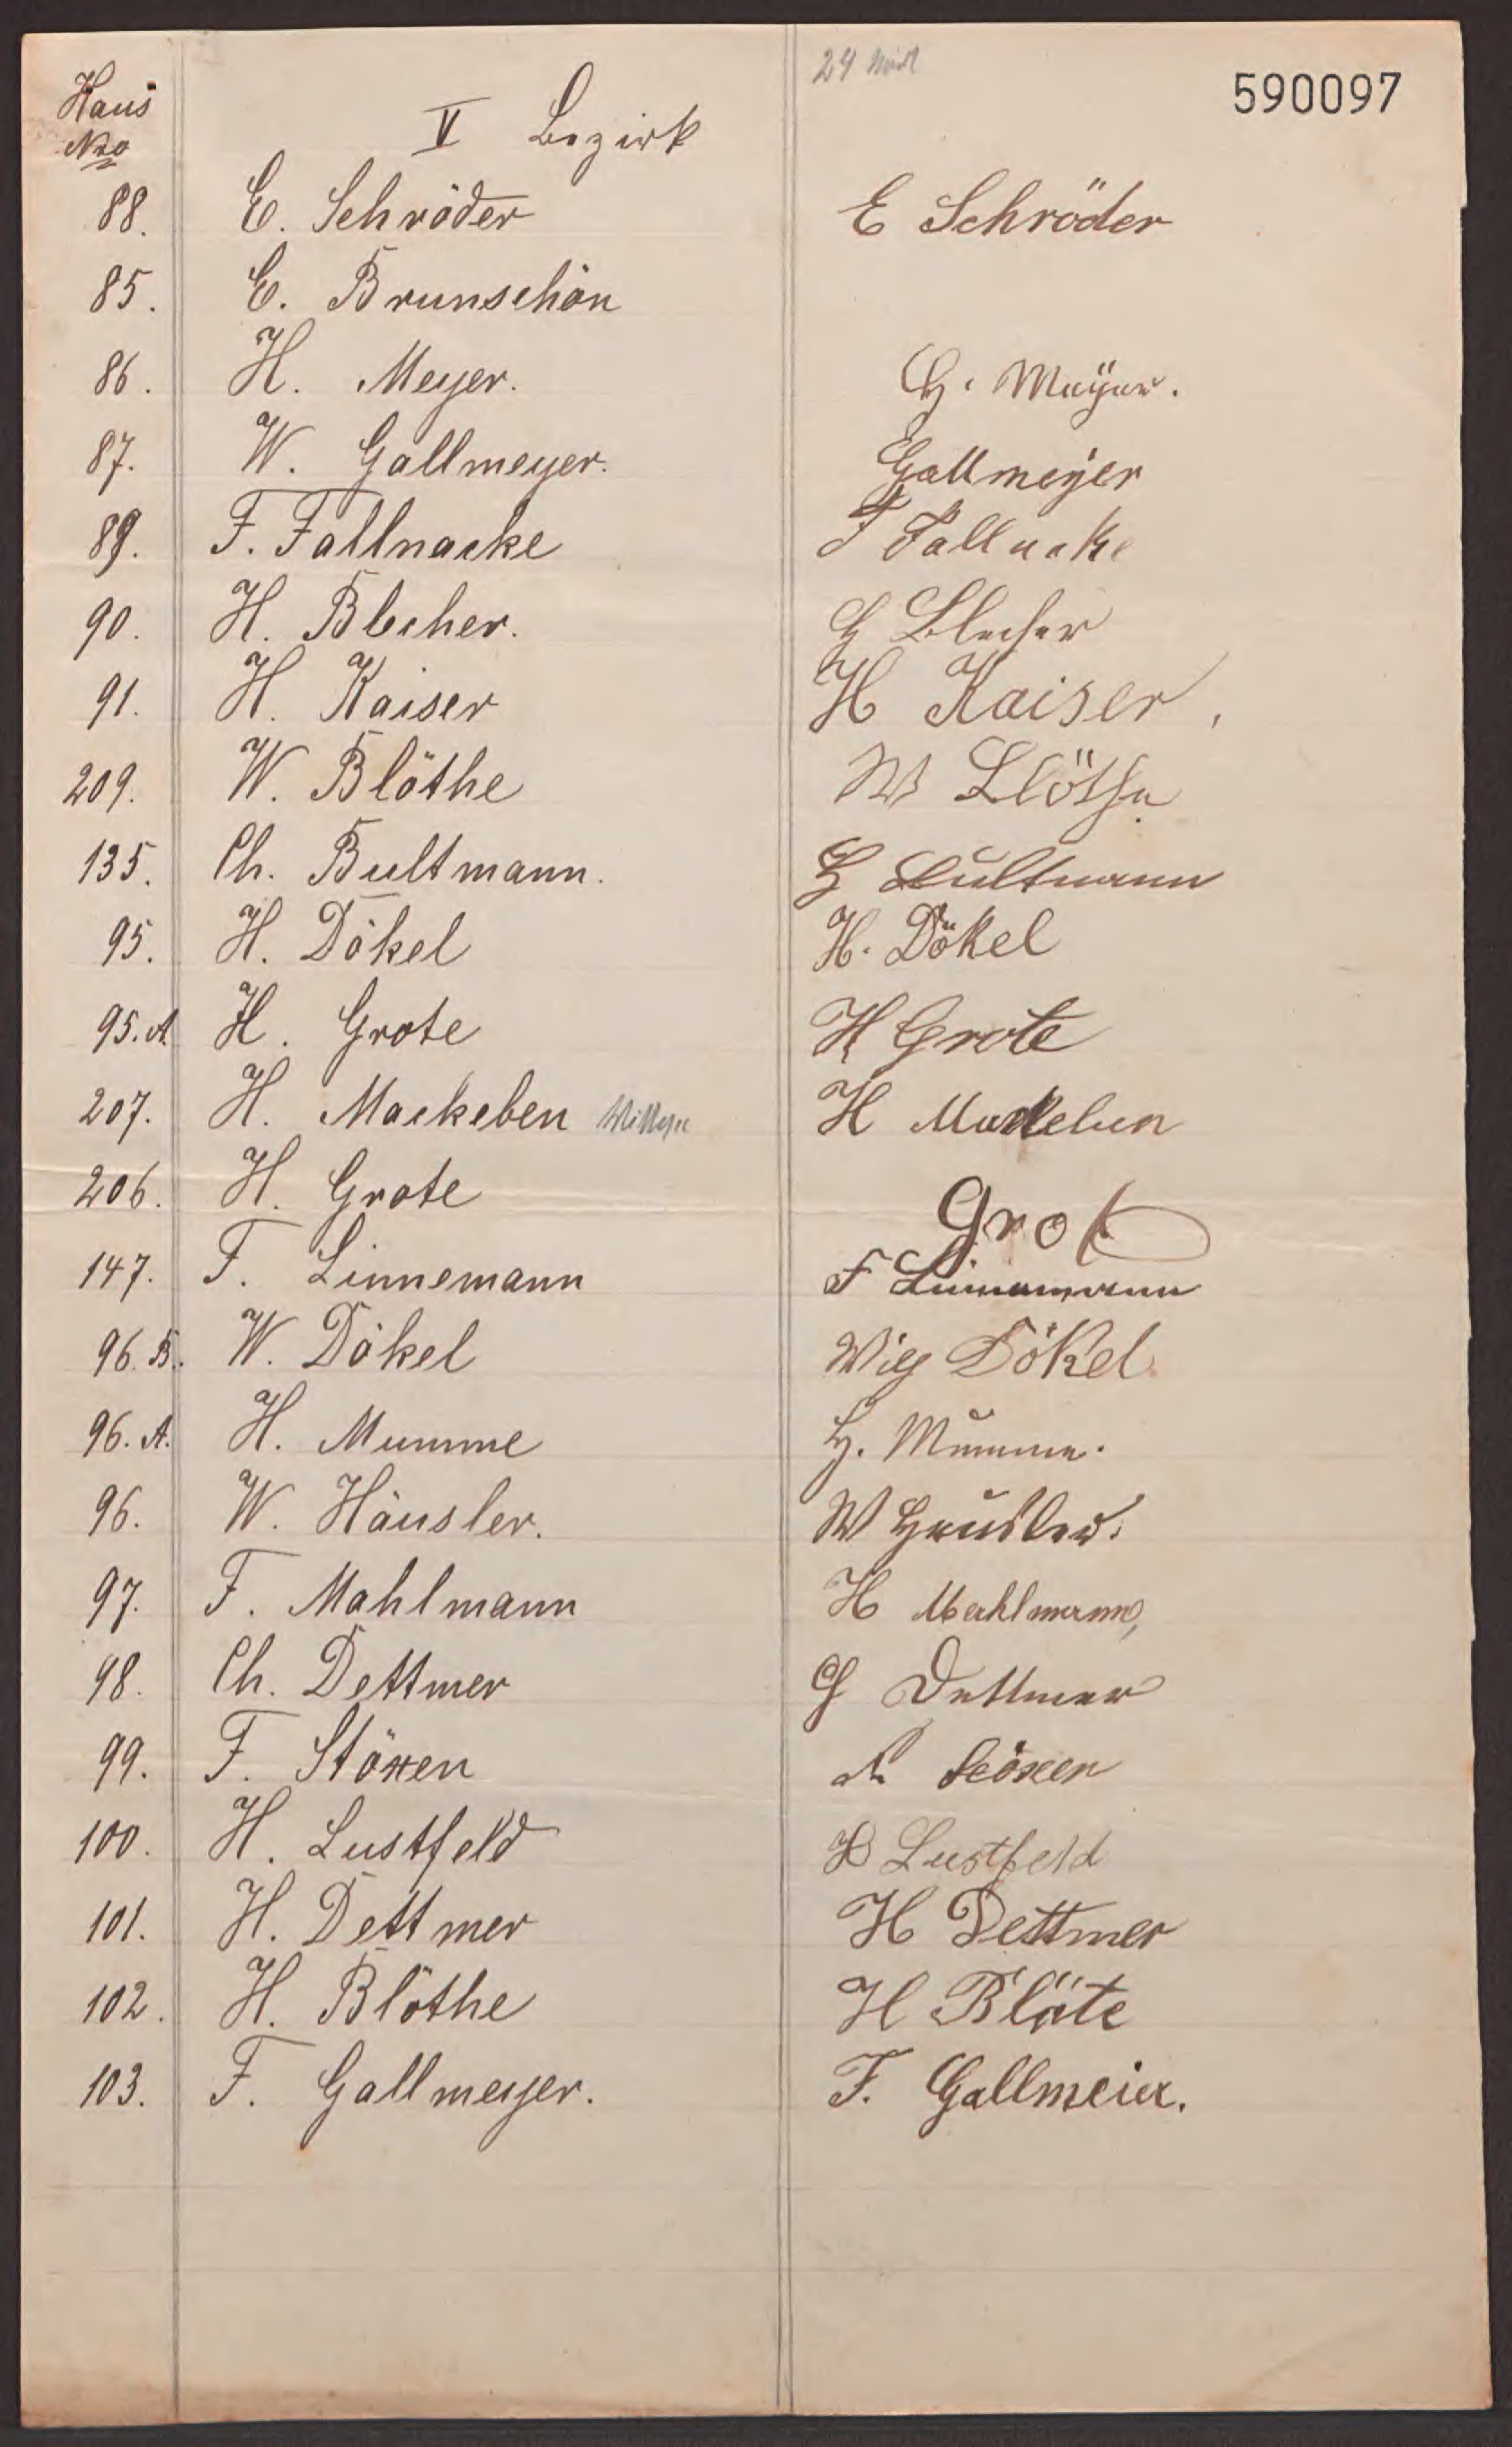 590097
Haus
Nro
V Bezirk
88. E. Schröder E Schröder
85. E. Brunschön
86. H. Meyer. H. Meÿer.
87. W. Gallmeyer. Gallmeÿer
89. F. Fallnacke F Fallnake
90. H. Blecher. H Blecher
91. H. Kaiser H Kaiser,
209. W. Blöthe W Blöthe
135. Ch. Bultmann. Bultmann
95. H. Dökel H. Dökel
95. A. H. Grote H Grote
207. H. Mackeben H Mackeben
206. H. Grote Grote
147. F. Linnemann F Linnemann
96. B. W. Dökel Dökel
96. A. H. Mumme H. Mumme.
96. W. Häusler. W Häusler.
97. F. Mahlmann H Mahlmann,
98. Ch. Dettmer Dettmer
99. F. Stöxen Stöxen
100. H. Lustfeld H Lustfeld
101. H. Dettmer H Dettmer
102. H. Blöthe H Blöte
103. F. Gallmeyer. F. Gallmeier.